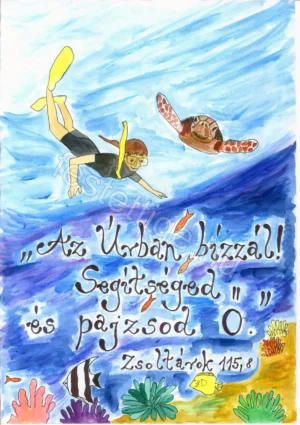 „Az Úrban bízzál!
Segítséged
és pajzsod Ő."
Zsoltárok 115,8